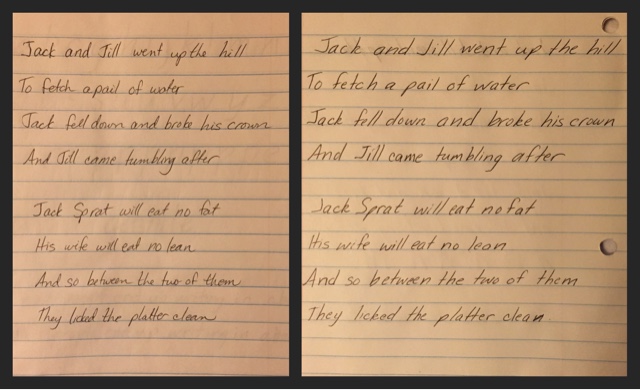 Jack and Jill went up the hill
To fetch a pail of water
Jack fell down and broke his crown
And Jill came tumbling after
Jack Sprat will eat no fat
His wife will eat no lean
And so between the two of them
They licked the platter clean
Jack and Jill went up the hill
To fetch a pail of water
Jack fell down and broke his crown
And Jill came tumbling after
Jack Sprat will eat no fat
His wife will eat no lean
And so between the two of them
They licked the platter clean